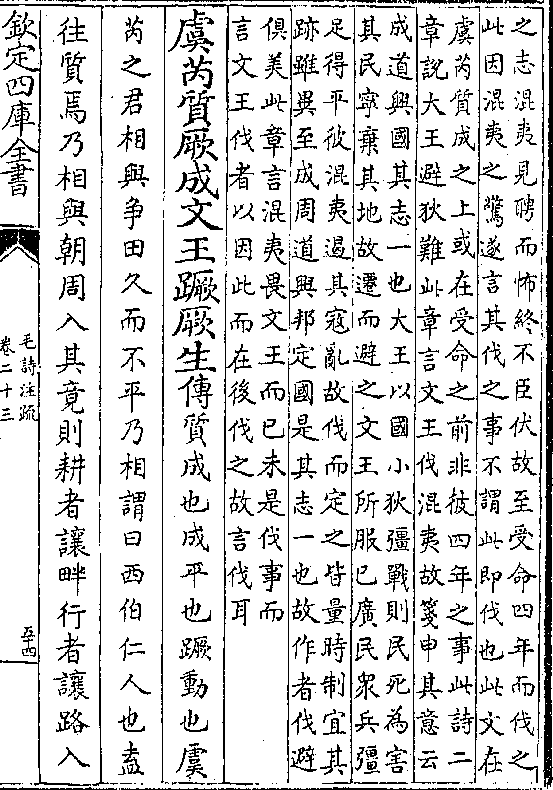 之志混夷見聘而怖終不臣伏故至受命四年而伐之
此因混夷之驚遂言其伐之事不謂此即伐也此文在
虞芮質成之上或在受命之前非彼四年之事此詩二
章說大王避狄難此章言文王伐混夷故箋申其意云
成道興國其志一也大王以國小狄彊戰則民死為害
其民寧棄其地故遷而避之文王所服已廣民衆兵彊
足得平彼混夷遏其寇亂故伐而定之皆量時制宜其
跡雖異至成周道興邦定國是其志一也故作者伐避
俱美此章言混夷畏文王而已未是伐事而
言文王伐者以因此而在後伐之故言伐耳
虞芮質厥成文王蹶厥生傳質成也成平也蹶動也虞
芮之君相與爭田久而不平乃相謂曰西伯仁人也盍
往質焉乃相與朝周入其竟則耕者讓畔行者讓路入
欽定四庫全書
毛詩注疏
卷二十三
五十四